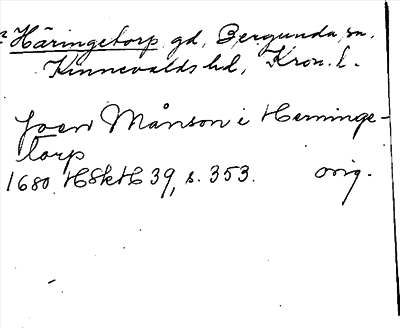 Häringetorp gd, Bergunda sn.
Kinnevalds hd, Kron. l.
Joen Månson i Heminge-
torp
1680 HSkH 39, s. 353. orig.